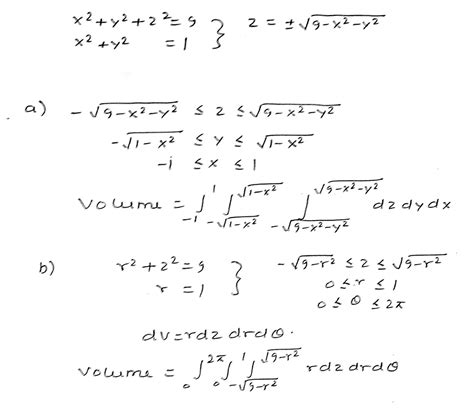 x² + y² + z² = 9 } z = ±√9-x²-y²
x² + y² = 1
a) -√9-x²-y² ≤ z ≤ √9-x²-y²
-√1-x² ≤ y ≤ √1-x²
-1 ≤ x ≤ 1
Volume = ∫₋₁¹ ∫_{-√1-x²}^{√1-x²} ∫_{-√9-x²-y²}^{√9-x²-y²} dz dy dx
b) r² + z² = 9 } -√9-r² ≤ z ≤ √9-r²
r = 1 0 ≤ r ≤ 1
0 ≤ θ ≤ 2π
dv = r dz dr dθ.
Volume = ∫₀^{2π} ∫₀¹ ∫_{-√9-r²}^{√9-r²} r dz dr dθ